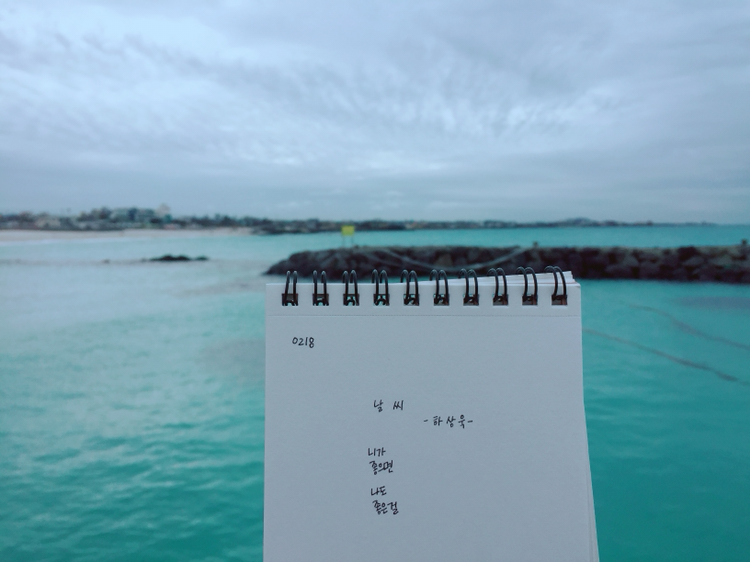 0218
날 씨
-하상욱-
니가
좋으면
나도
좋은걸